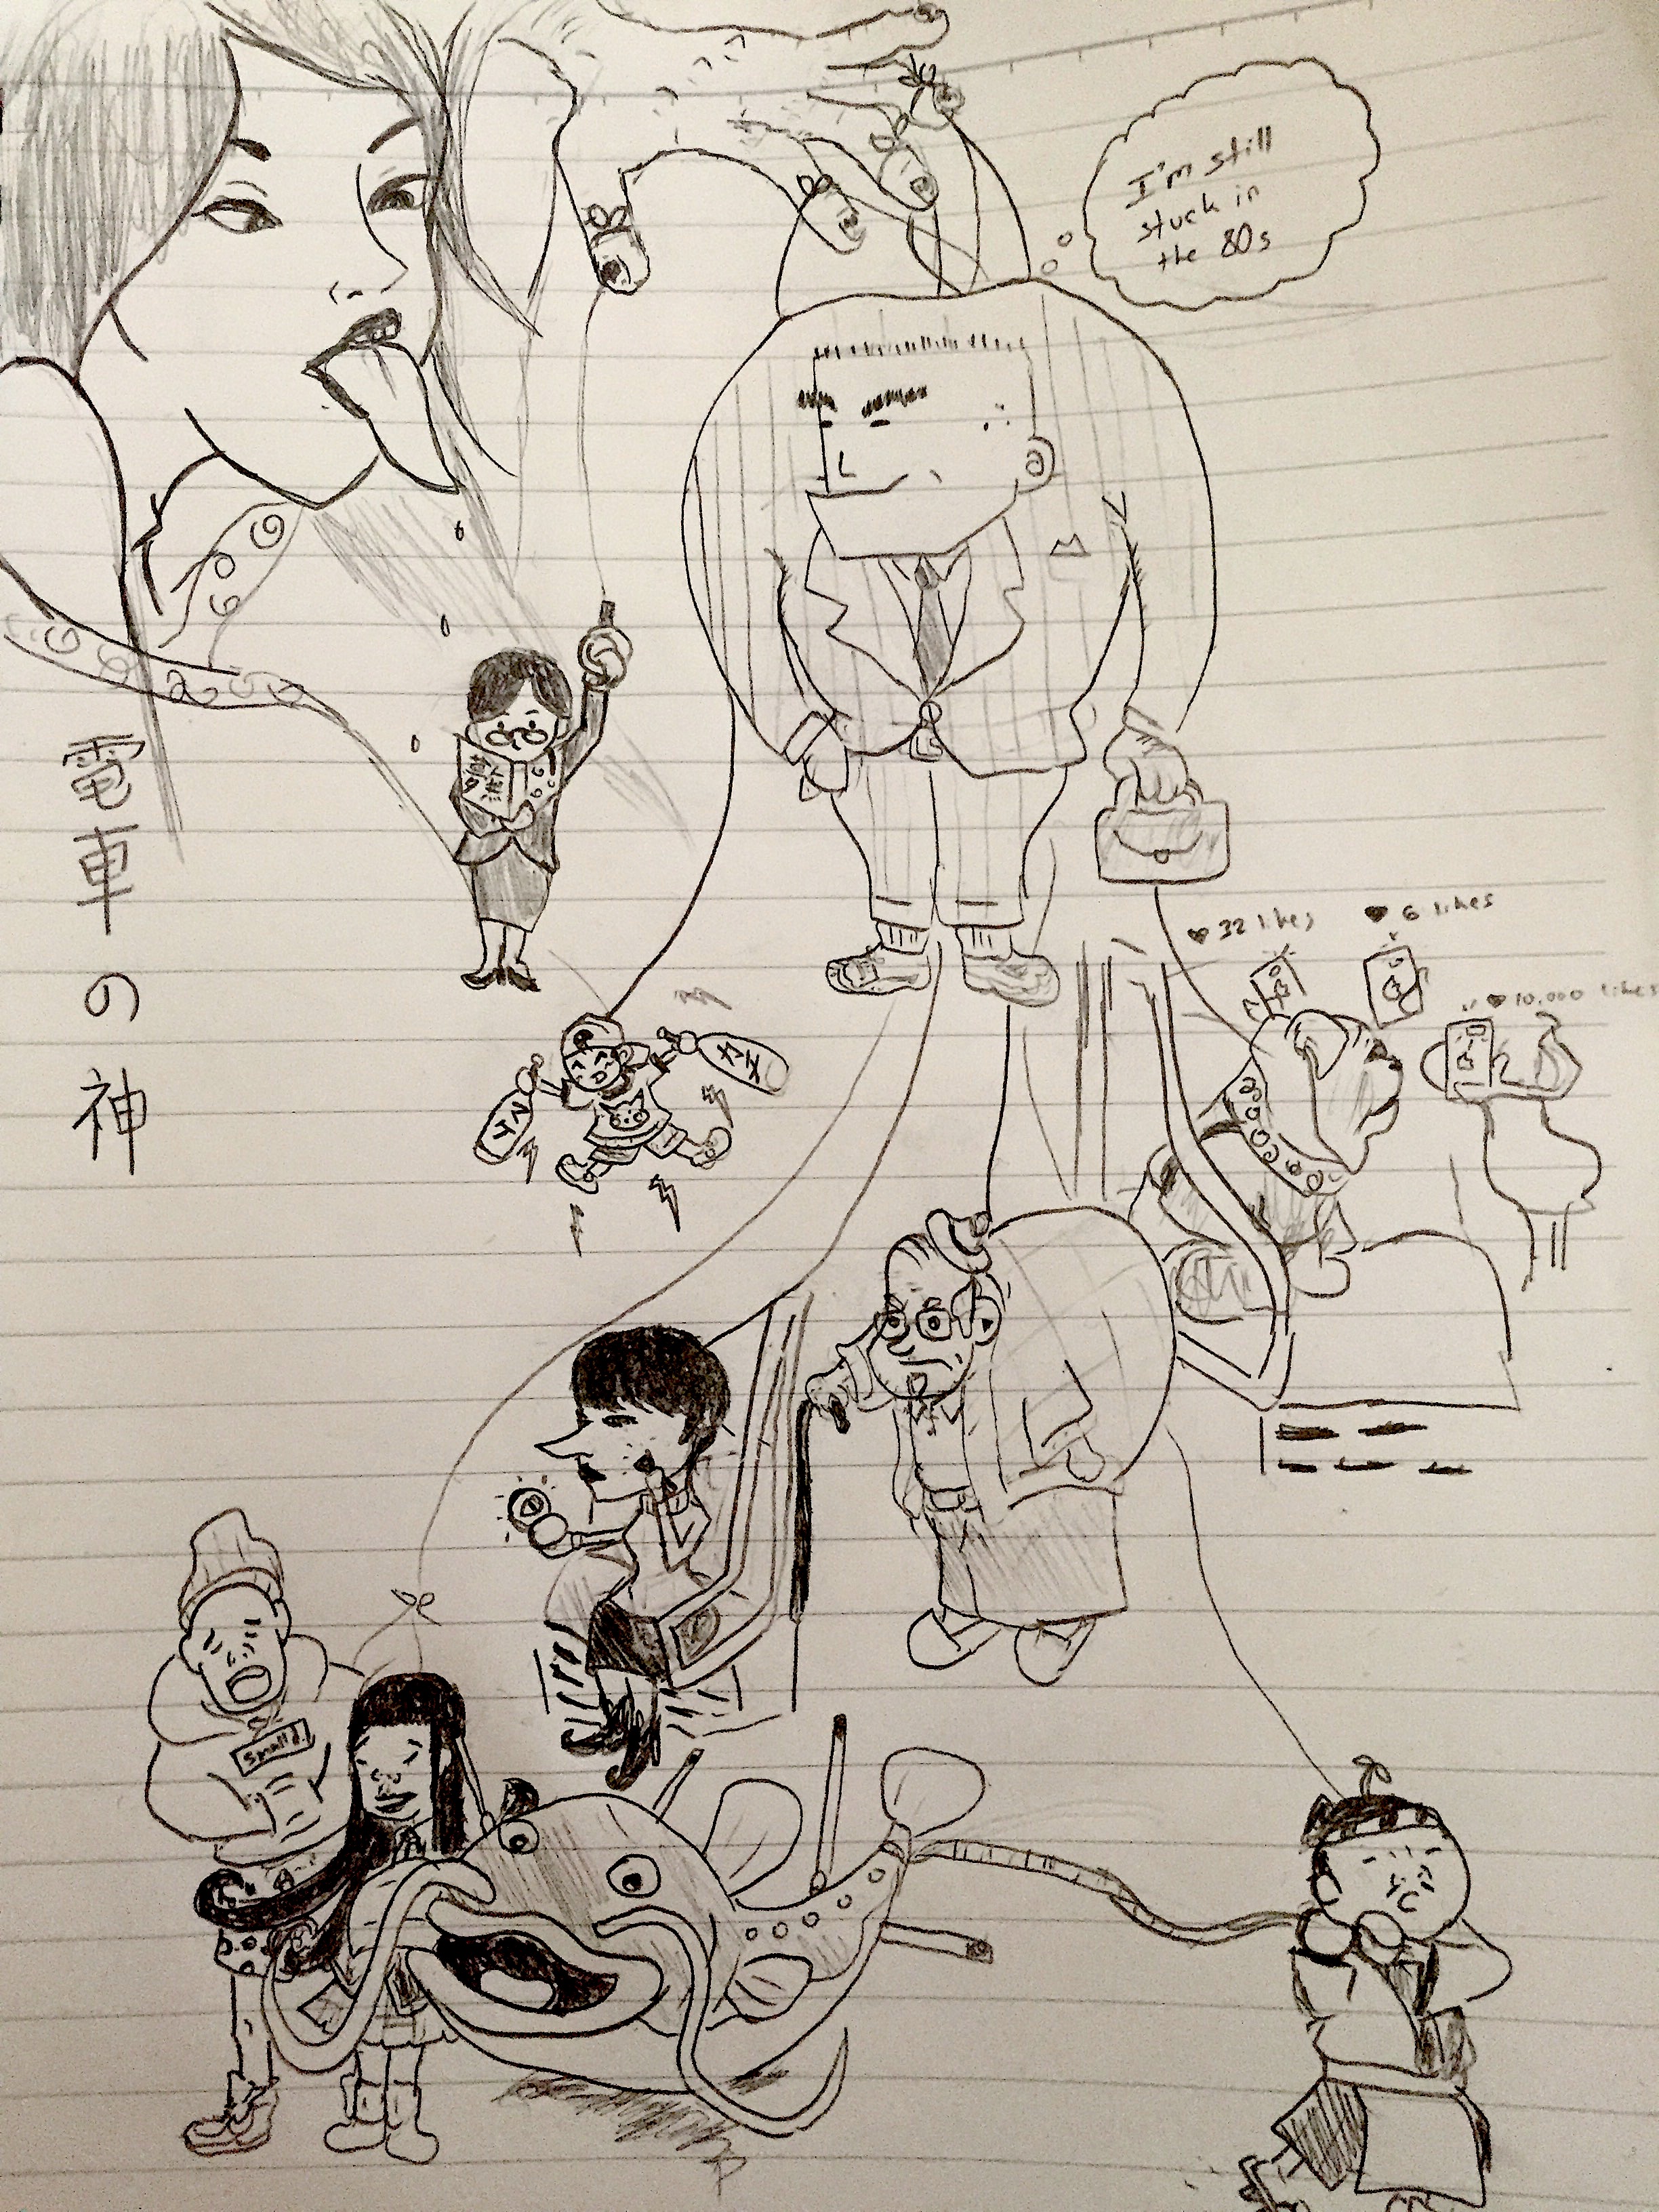 I'm still
stuck in
the 80s
電車の神
♥ 32 likes
♥ 6 likes
♥ 10,000 likes